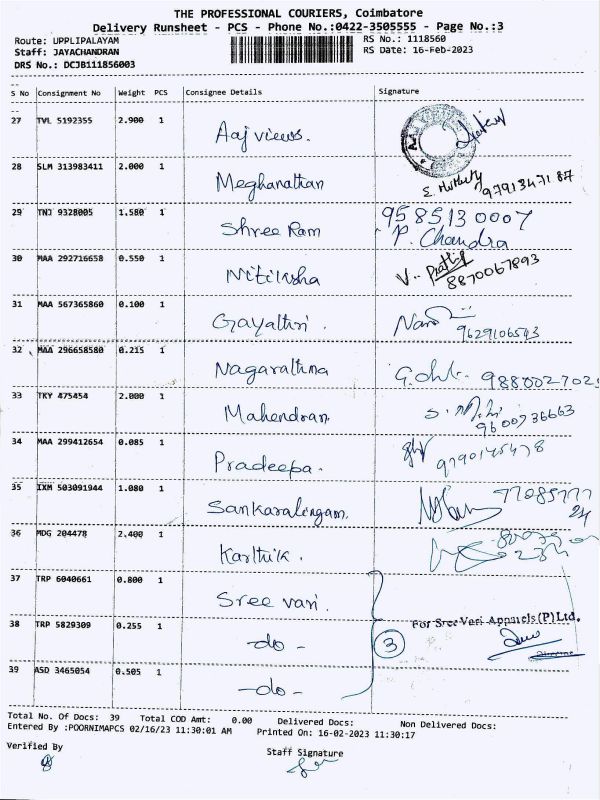 THE PROFESSIONAL COURIERS, Coimbatore
Delivery Runsheet - PCS - Phone No.:0422-3505555 - Page No.:3
Route: UPPLIPALAYAM RS No.: 1118560
Staff: JAYACHANDRAN RS Date: 16-Feb-2023
DRS No.: DCJB111856003
S No Consignment No Weight PCS Consignee Details Signature
27 TVL 5192355 2.900 1 Aaj views.
28 SLM 313983411 2.000 1 Meghanathan
9791347187
29 TNJ 9328005 1.580 1 Shree Ram 9585130007
P. Chandra
30 MAA 292716658 0.550 1 Nitiksha V.
8870067893
31 MAA 567365860 0.100 1 Gayathri.
9629106543
32 MAA 296658580 0.215 1 Nagarathna
33 TKY 475454 2.000 1 Mahendran.
9600736663
34 MAA 299412654 0.085 1 Pradeepa.
35 IXM 503091944 1.080 1 Sankaralingam.
36 MDG 204478 2.400 1 Karthik.
37 TRP 6040661 0.800 1 Sree vari.
For Sree Vari Apparels (P) Ltd.
38 TRP 5829309 0.255 1 -do- 3
39 ASD 3465054 0.505 1 -do-
Total No. Of Docs: 39 Total COD Amt: 0.00 Delivered Docs: Non Delivered Docs:
Entered By :POORNIMAPCS 02/16/23 11:30:01 AM Printed On: 16-02-2023 11:30:17
Verified By Staff Signature